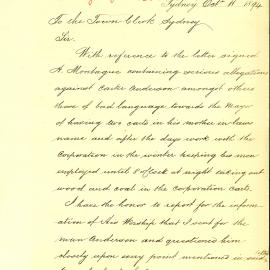 Sydney Oct. 11 1894
To the Town Clerk Sydney
Sir.
With reference to the letter signed
A. Montague containing serious allegations
against Carter Anderson amongst others
those of bad language towards the Mayor
of having two carts in his mother in laws
name and after the days work with the
Corporation in the winter keeping his men
employed until 8 o'clock at night taking out
wood and coal in the Corporation carts.
I have the honor to report for the inform
ation of His Worship that I sent for the
man Anderson and questioned him
closely upon every point mentioned in said